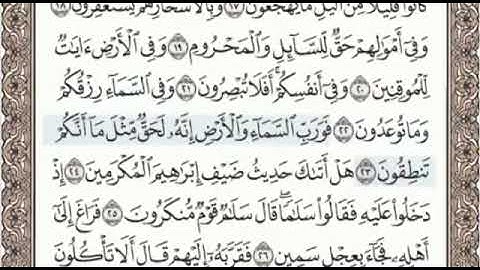 كَانُوا۟ قَلِيلًا مِّنَ ٱلَّيْلِ مَا يَهْجَعُونَ ١٧ وَبِٱلْأَسْحَارِ هُمْ يَسْتَغْفِرُونَ ١٨
وَفِىٓ أَمْوَٰلِهِمْ حَقٌّ لِّلسَّآئِلِ وَٱلْمَحْرُومِ ١٩ وَفِى ٱلْأَرْضِ ءَايَٰتٌ
لِّلْمُوقِنِينَ ٢٠ وَفِىٓ أَنفُسِكُمْ ۚ أَفَلَا تُبْصِرُونَ ٢١ وَفِى ٱلسَّمَآءِ رِزْقُكُمْ
وَمَا تُوعَدُونَ ٢٢ فَوَرَبِّ ٱلسَّمَآءِ وَٱلْأَرْضِ إِنَّهُۥ لَحَقٌّ مِّثْلَ مَآ أَنَّكُمْ
تَنطِقُونَ ٢٣ هَلْ أَتَىٰكَ حَدِيثُ ضَيْفِ إِبْرَٰهِيمَ ٱلْمُكْرَمِينَ ٢٤ إِذْ
دَخَلُوا۟ عَلَيْهِ فَقَالُوا۟ سَلَٰمًا ۖ قَالَ سَلَٰمٌ قَوْمٌ مُّنكَرُونَ ٢٥ فَرَاغَ إِلَىٰٓ
أَهْلِهِۦ فَجَآءَ بِعِجْلٍ سَمِينٍ ٢٦ فَقَرَّبَهُۥٓ إِلَيْهِمْ قَالَ أَلَا تَأْكُلُونَ